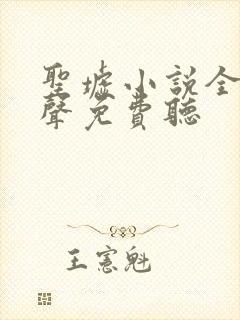 聖墟小說全
聲免費聽
王憲魁